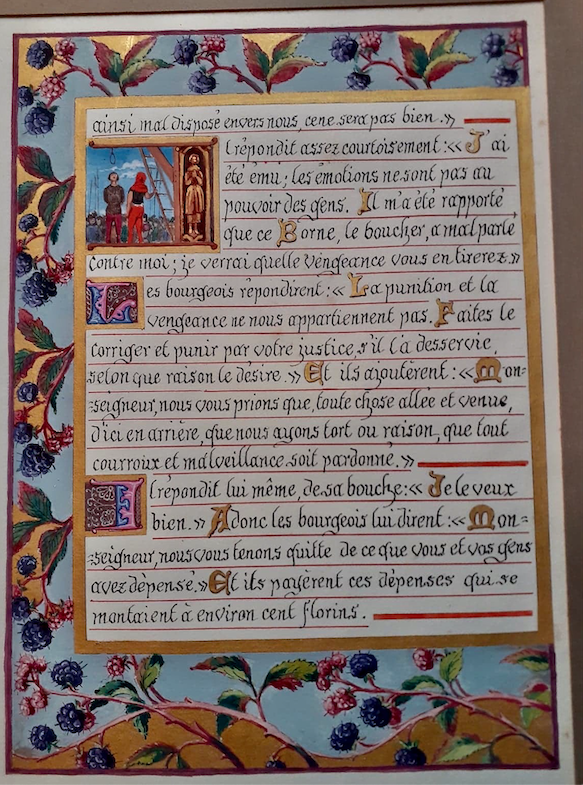 ainsi mal disposé envers nous, ce ne sera pas bien.»
Il répondit assez courtoisement: «J'ai
été ému; les émotions ne sont pas au
pouvoir des gens. Il m'a été rapporté
que ce Borne, le boucher, a mal parlé
contre moi; je verrai quelle vengeance vous en tirerez.»
Les bourgeois répondirent: «La punition et la
vengeance ne nous appartiennent pas. Faites le
corriger et punir par votre justice, s'il l'a desservie,
selon que raison le désire.» Et ils ajoutèrent: «Mon=
=seigneur, nous vous prions que, toute chose allée et venue,
d'ici en arrière, que nous ayons tort ou raison, que tout
courroux et malveillance soit pardonné.»
Il répondit lui même, de sa bouche: «Je le veux
bien.» Adonc les bourgeois lui dirent: «Mon=
=seigneur, nous vous tenons quitte de ce que vous et vos gens
avez dépensé.» Et ils payèrent ces dépenses qui se
montaient à environ cent florins.